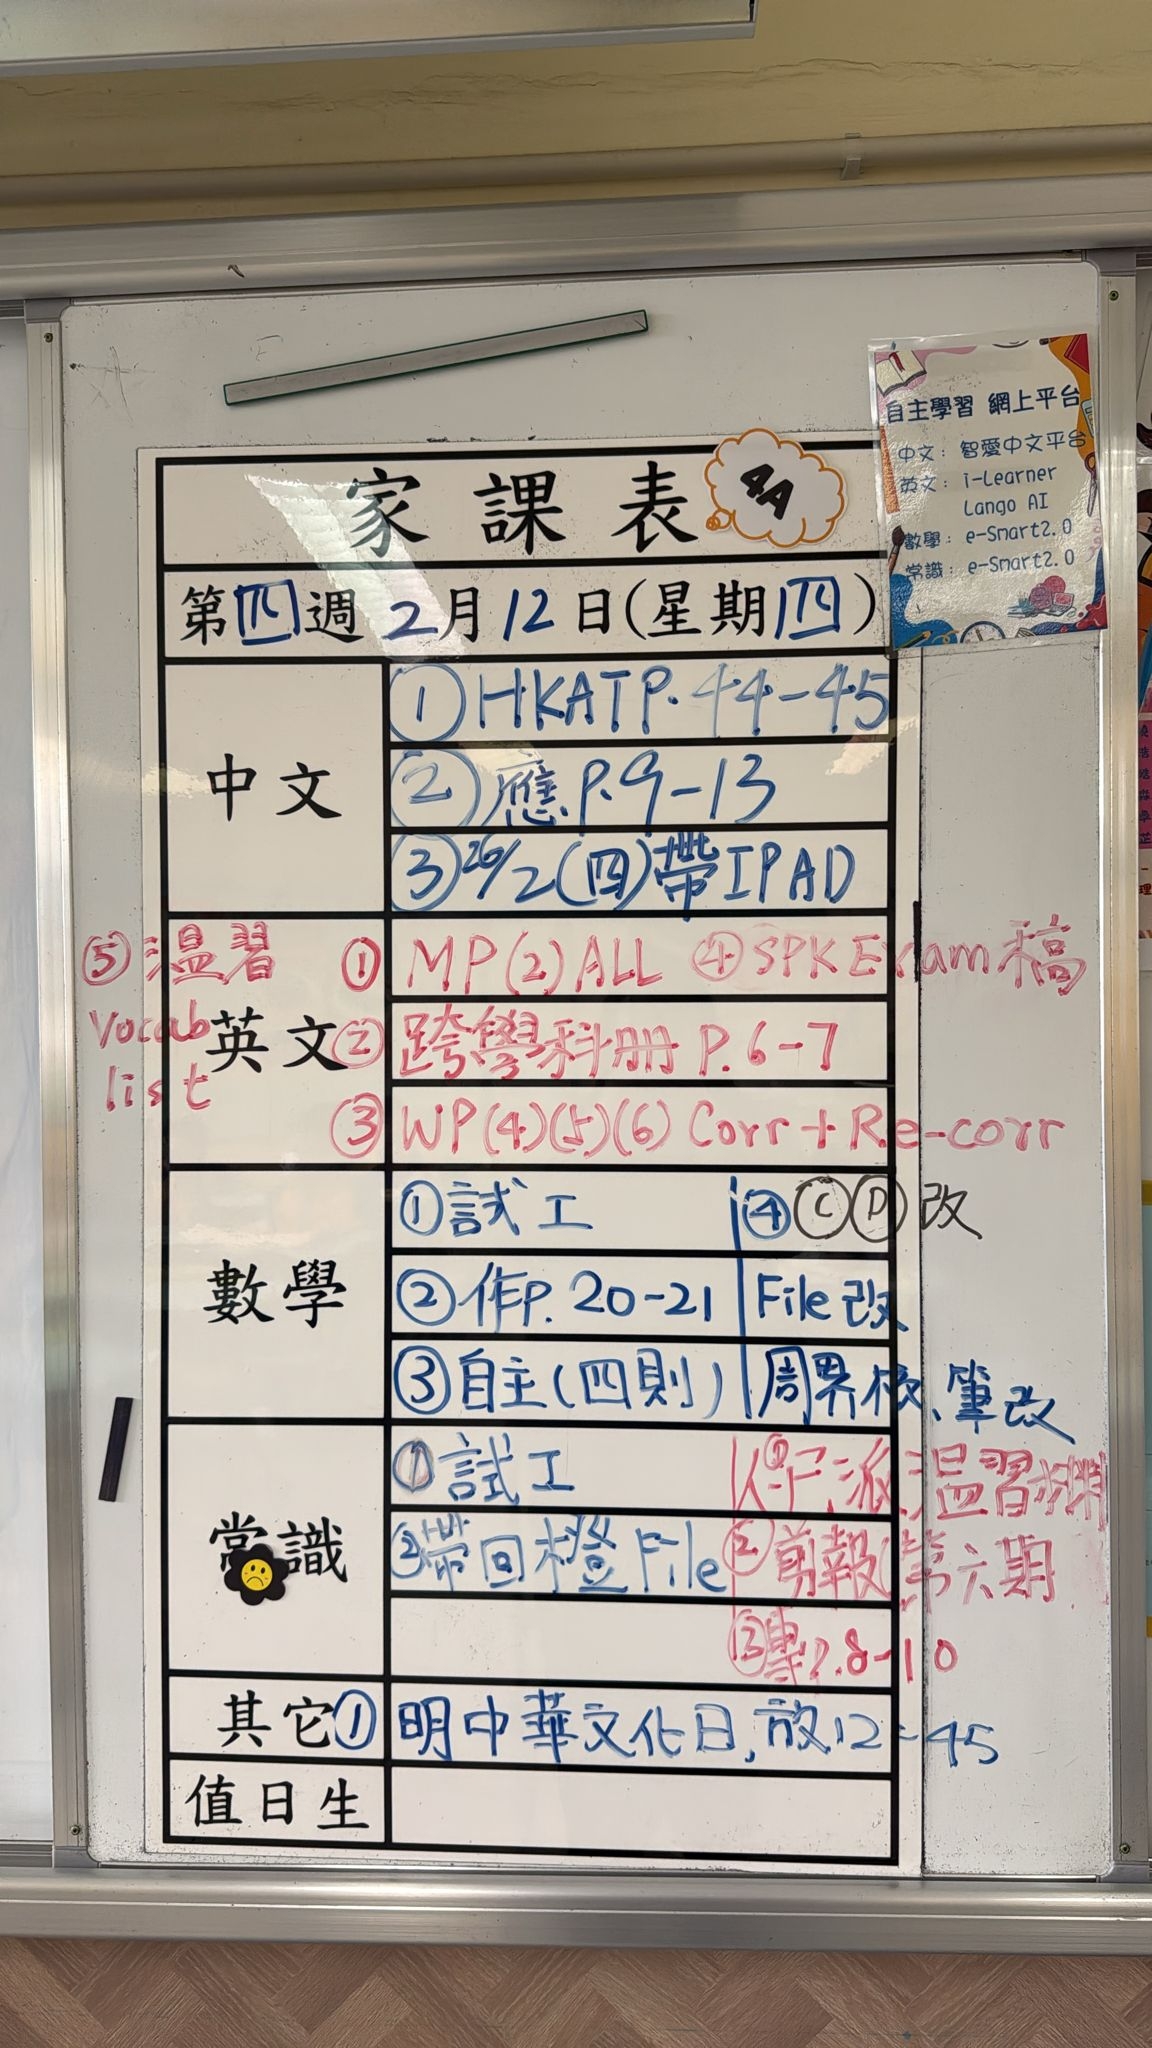 家課表 4A
自主學習 網上平台
中文：智愛中文平台
英文：i-Learner
Lango AI
數學：e-Smart2.0
常識：e-Smart2.0
第四週 2月12日(星期四)
中文
① HKAT P. 44-45
② 應 P. 9-13
③ 26/2(四)帶IPAD
英文
① MP(2)ALL ④ SPK Exam 稿
② 跨學科冊 P. 6-7
③ WP(4)(5)(6) Corr + Re-corr
⑤ 溫習
Vocab
list
數學
① 試工 ④ Ⓒ Ⓓ 改
② 作P. 20-21 File 改
③ 自主(四則) 周界 筆改
常識
① 試工 ① 派溫習
② 帶回橙File ② 剪報 第六期
③ 專P. 8-10
其它
① 明中華文化日, 放12:45
值日生